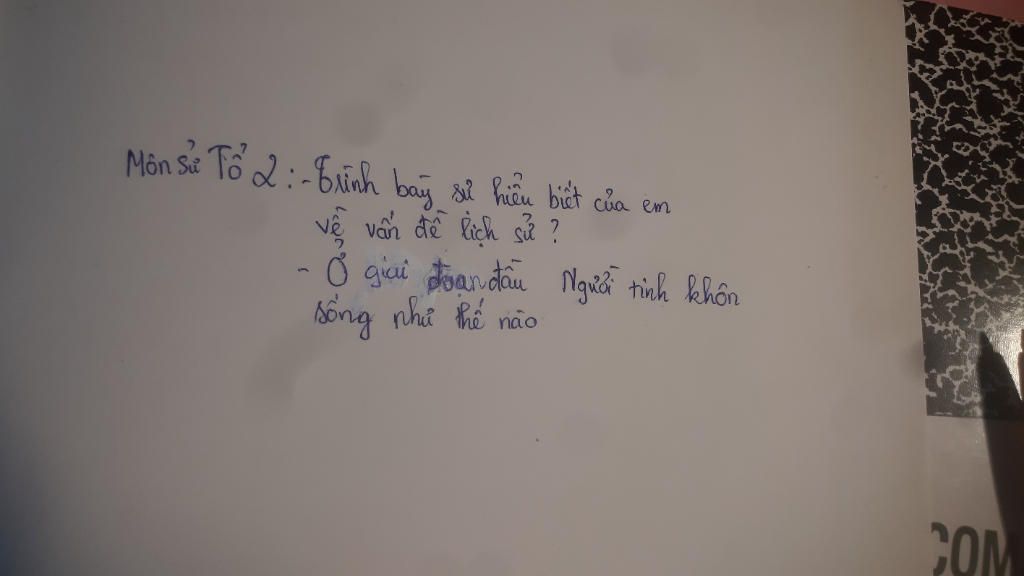 Môn sử Tổ 2 : - Trình bày sự hiểu biết của em
về vấn đề lịch sử ?
- Ở giai đoạn đầu Người tinh khôn
sống như thế nào
COM